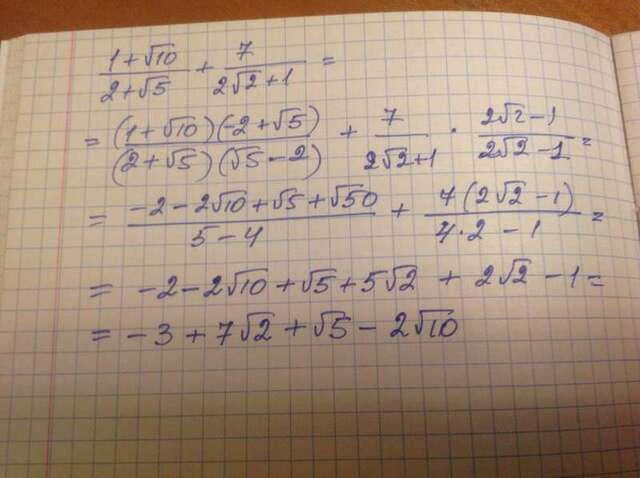 (1+√10)/(2+√5) + 7/(2√2+1) =
= (1+√10)(-2+√5)/(2+√5)(√5-2) + 7/(2√2+1) · (2√2-1)/(2√2-1) =
= (-2-2√10+√5+√50)/(5-4) + 7(2√2-1)/(4·2-1) =
= -2-2√10+√5+5√2 + 2√2-1=
= -3+7√2+√5-2√10